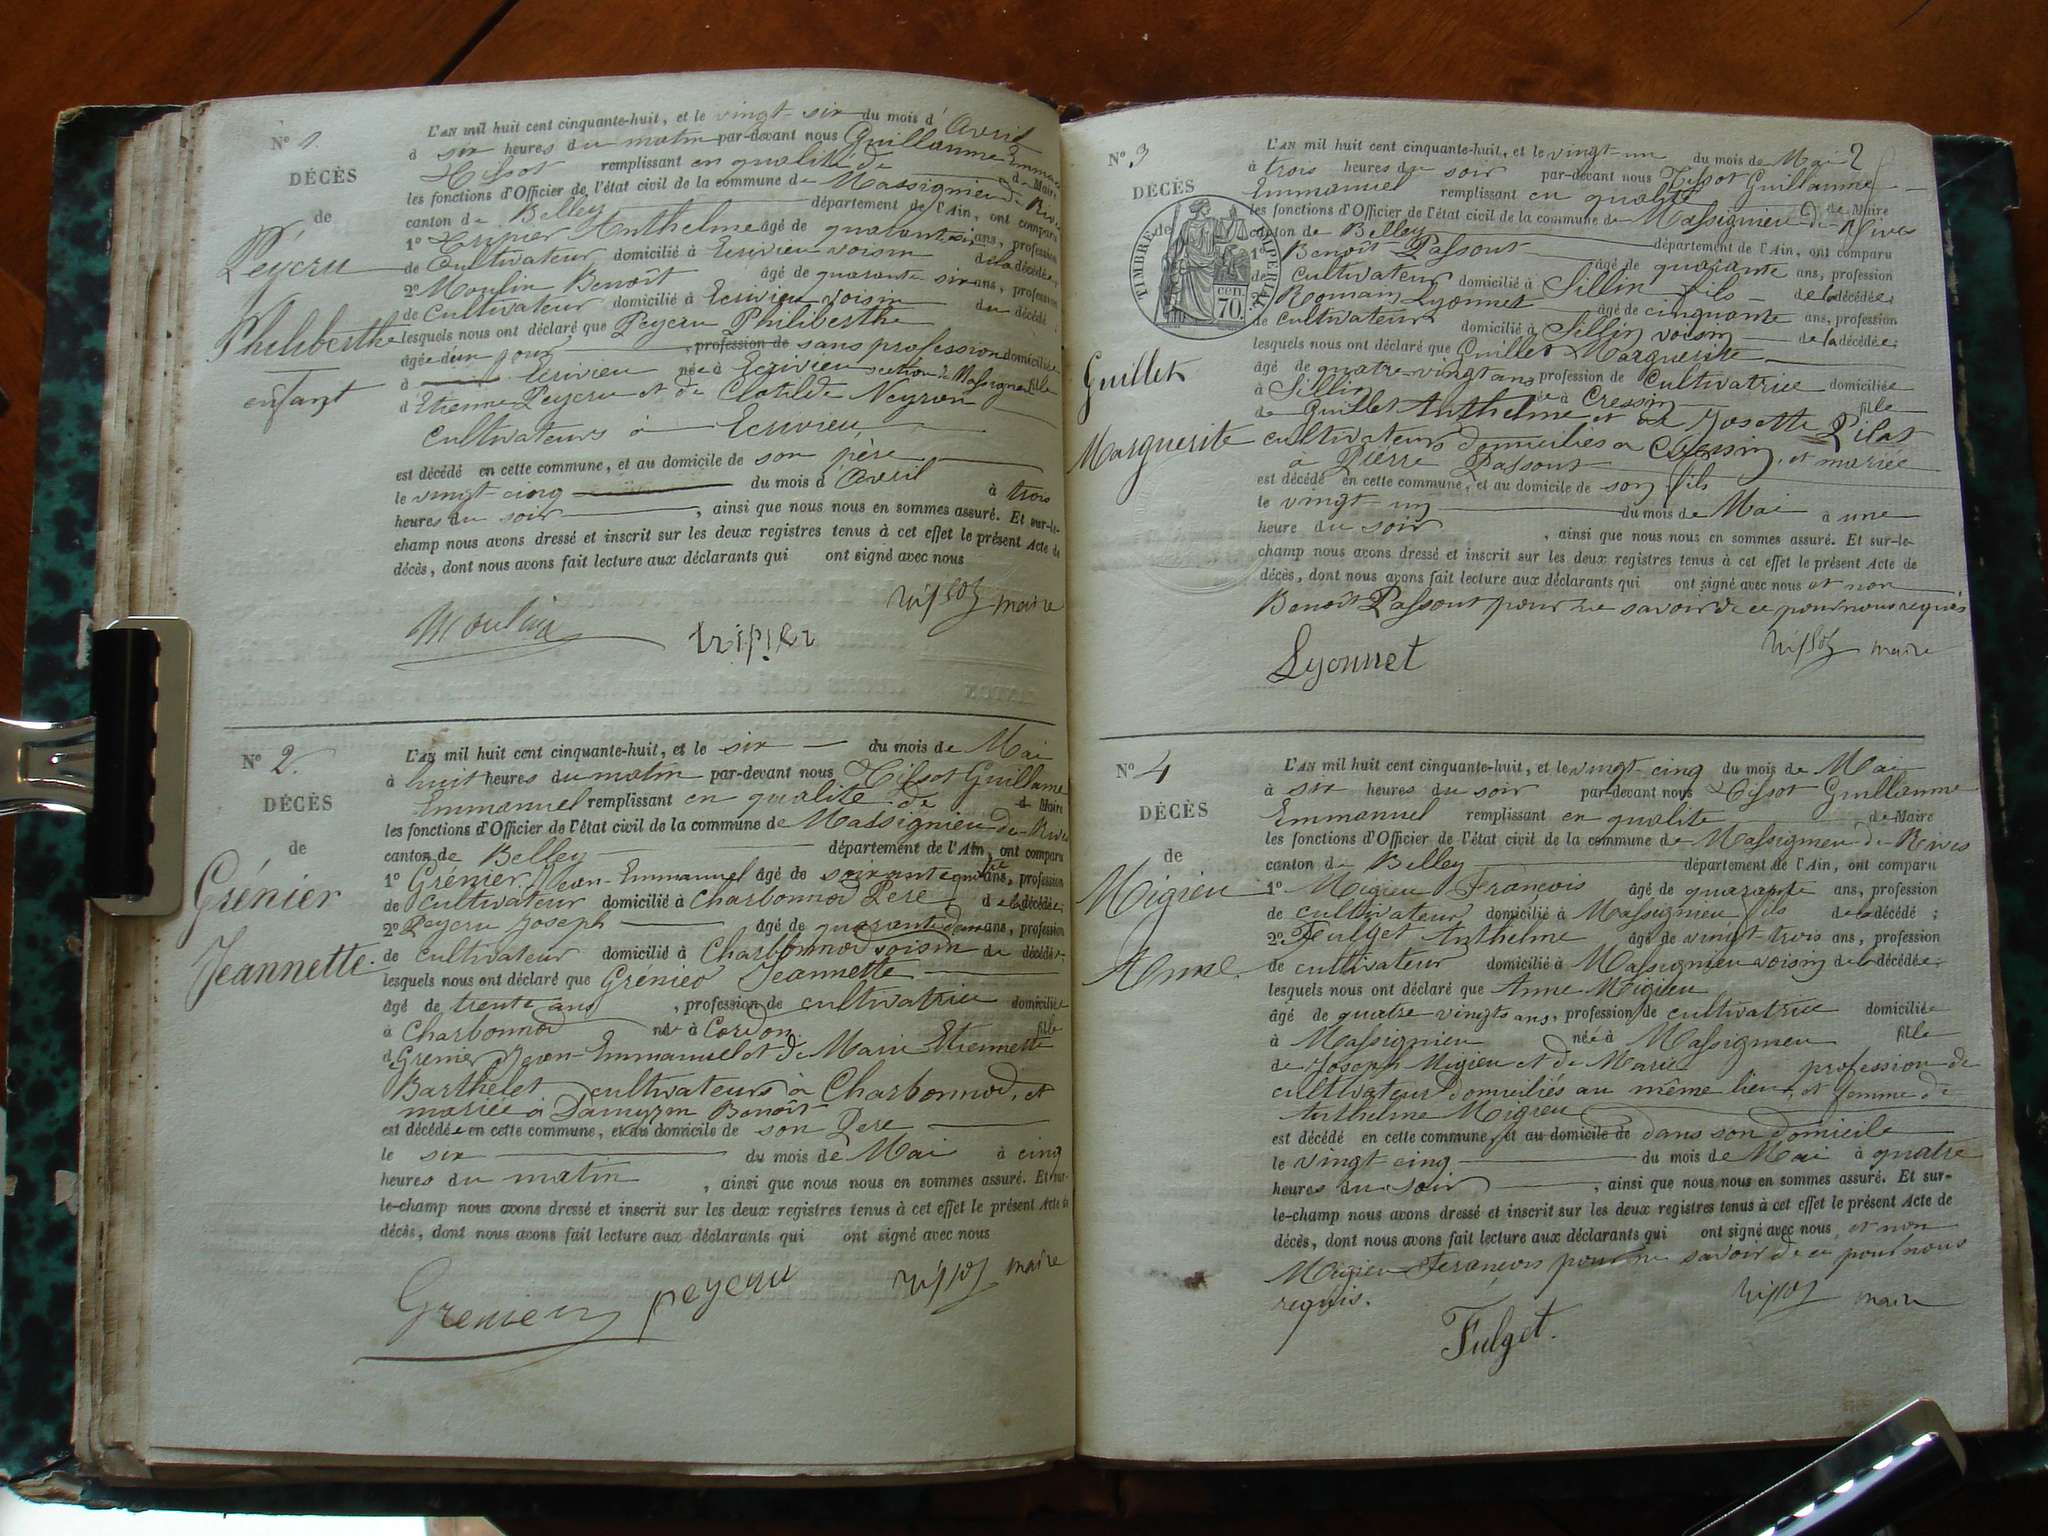 N° 1.
DÉCÈS
de
Peycru
Philiberthe
enfant
L'AN mil huit cent cinquante-huit, et le vingt-six du mois d'Avril
à six heures du matin par-devant nous Guillaume Emmanuel
Tissot remplissant en qualité de de Maire
les fonctions d'Officier de l'état civil de la commune de Massignieu de Rives
canton de Belley département de l'Ain, ont comparu
1° Tripier Anthelme âgé de quarante ans, profession
de Cultivateur domicilié à Ecrivieu voisin de la décédée;
2° Moulin Benoît âgé de quarante six ans, profession
de Cultivateur domicilié à Ecrivieu voisin du décédé;
lesquels nous ont déclaré que Peycru Philiberthe
âgée d'un jour, profession de sans profession domiciliée
à Ecrivieu née à Ecrivieu section de Massignieu fille
d'Etienne Peycru et de Clotilde Neyron
cultivateurs à Ecrivieu
est décédé en cette commune, et au domicile de son père
le vingt-cinq du mois d'Avril à trois
heures du soir, ainsi que nous nous en sommes assuré. Et sur-le-
champ nous avons dressé et inscrit sur les deux registres tenus à cet effet le présent Acte de
décès, dont nous avons fait lecture aux déclarants qui ont signé avec nous
Tissot maire
Moulin tripier
N° 2.
DÉCÈS
de
Grénier
Jeannette.
L'AN mil huit cent cinquante-huit, et le six du mois de Mai
à huit heures du matin par-devant nous Tissot Guillaume
Emmanuel remplissant en qualité de de Maire
les fonctions d'Officier de l'état civil de la commune de Massignieu de Rives
canton de Belley département de l'Ain, ont comparu
1° Grénier Jean-Emmanuel âgé de soixante ans, profession
de cultivateur domicilié à Charbonnod Père de la décédée;
2° Peycru Joseph âgé de quarante deux ans, profession
de cultivateur domicilié à Charbonnod voisin de décédée
lesquels nous ont déclaré que Grénier Jeannette
âgé de trente ans, profession de cultivatrice domiciliée
à Charbonnod née à Cordon fille
de Grenier Jean-Emmanuel et de Marie Etiennette
Barthelet cultivateurs à Charbonnod, et
mariée à Benoît
est décédée en cette commune, et au domicile de son Père
le six du mois de Mai à cinq
heures du matin, ainsi que nous nous en sommes assuré. Et sur-
le-champ nous avons dressé et inscrit sur les deux registres tenus à cet effet le présent Acte de
décès, dont nous avons fait lecture aux déclarants qui ont signé avec nous
Grenier peycru Tissot maire
N° 3
DÉCÈS
de
TIMBRE IMPÉRIAL
70 cen.
Guillet
Marguerite
L'AN mil huit cent cinquante-huit, et le vingt-un du mois de Mai 2
à trois heures de soir par-devant nous Tissot Guillaume
Emmanuel remplissant en qualité de Maire
les fonctions d'Officier de l'état civil de la commune de Massignieu de Rives
canton de Belley département de l'Ain, ont comparu
1° Benoît Passout âgé de quarante ans, profession
de Cultivateur domicilié à Sillin fils de la décédée;
2° Romain Lyonnet âgé de cinquante ans, profession
de cultivateur domicilié à Sillin voisin de la décédée;
lesquels nous ont déclaré que Guillet Marguerite
âgé de quatre-vingt ans profession de Cultivatrice domiciliée
à Sillin née à Cressin fille
de Guillet Anthelme et de Josette Pilat
cultivateurs domiciliés à Cressin, et mariée
à Pierre Passout
est décédé en cette commune, et au domicile de son fils
le vingt-un du mois de Mai à une
heure du soir, ainsi que nous nous en sommes assuré. Et sur-le-
champ nous avons dressé et inscrit sur les deux registres tenus à cet effet le présent Acte de
décès, dont nous avons fait lecture aux déclarants qui ont signé avec nous et non
Benoît Passout pour ne savoir de ce par nous requis
Tissot maire
Lyonnet
N° 4
DÉCÈS
de
Migieu
Anne.
L'AN mil huit cent cinquante-huit, et le vingt-cinq du mois de Mai
à six heures du soir par-devant nous Tissot Guillaume
Emmanuel remplissant en qualité de Maire
les fonctions d'Officier de l'état civil de la commune de Massignieu de Rives
canton de Belley département de l'Ain, ont comparu
1° Migieu François âgé de quarante ans, profession
de cultivateur domicilié à Massignieu fils de la décédé;
2° Fulget Anthelme âgé de vingt-trois ans, profession
de cultivateur domicilié à Massignieu voisin de la décédée;
lesquels nous ont déclaré que Anne Migieu
âgé de quatre vingts ans, profession de cultivatrice domiciliée
à Massignieu née à Massignieu fille
de Joseph Migieu et de Marie profession de
cultivateur domiciliés au même lieu, et femme de
Anthelme Migieu
est décédé en cette commune, et au domicile de dans son domicile
le vingt-cinq du mois de Mai à quatre
heures du soir, ainsi que nous nous en sommes assuré. Et sur-
le-champ nous avons dressé et inscrit sur les deux registres tenus à cet effet le présent Acte de
décès, dont nous avons fait lecture aux déclarants qui ont signé avec nous, et non
Migieu François pour ne savoir de ce par nous
requis.
Tissot maire
Fulget.